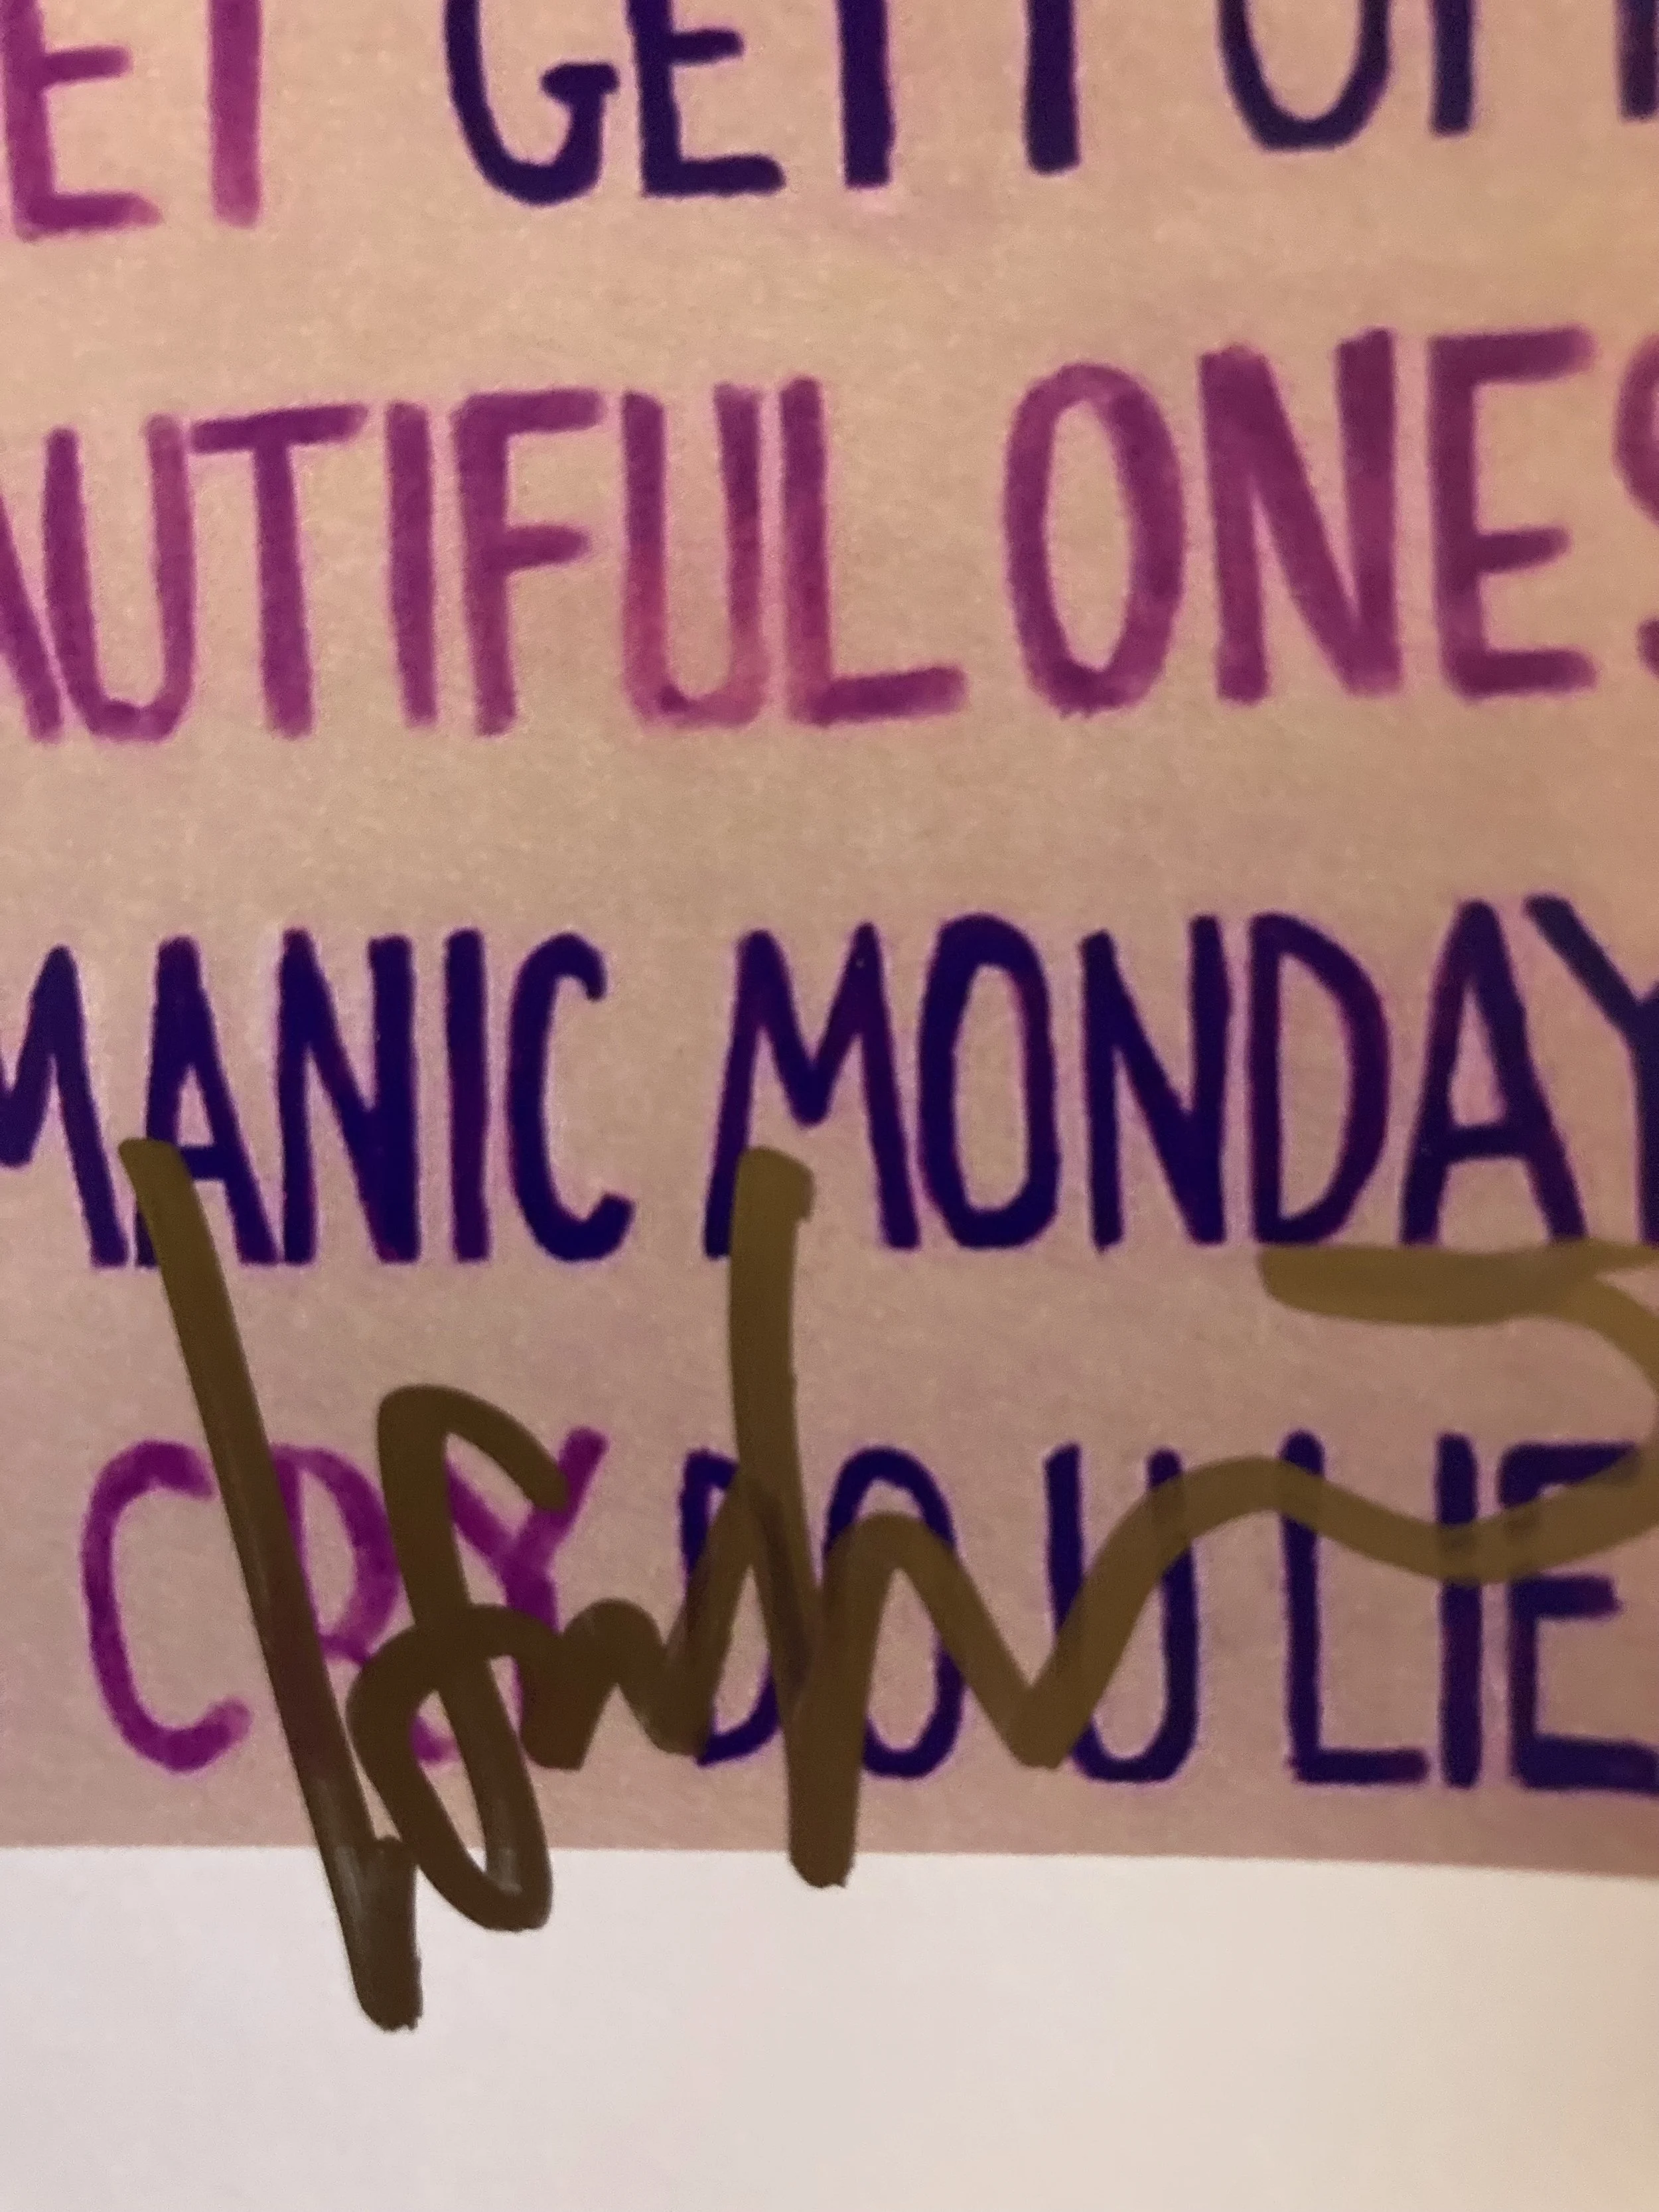 ET GETT OFF
AUTIFUL ONES
MANIC MONDAY
CRY DO U LIE